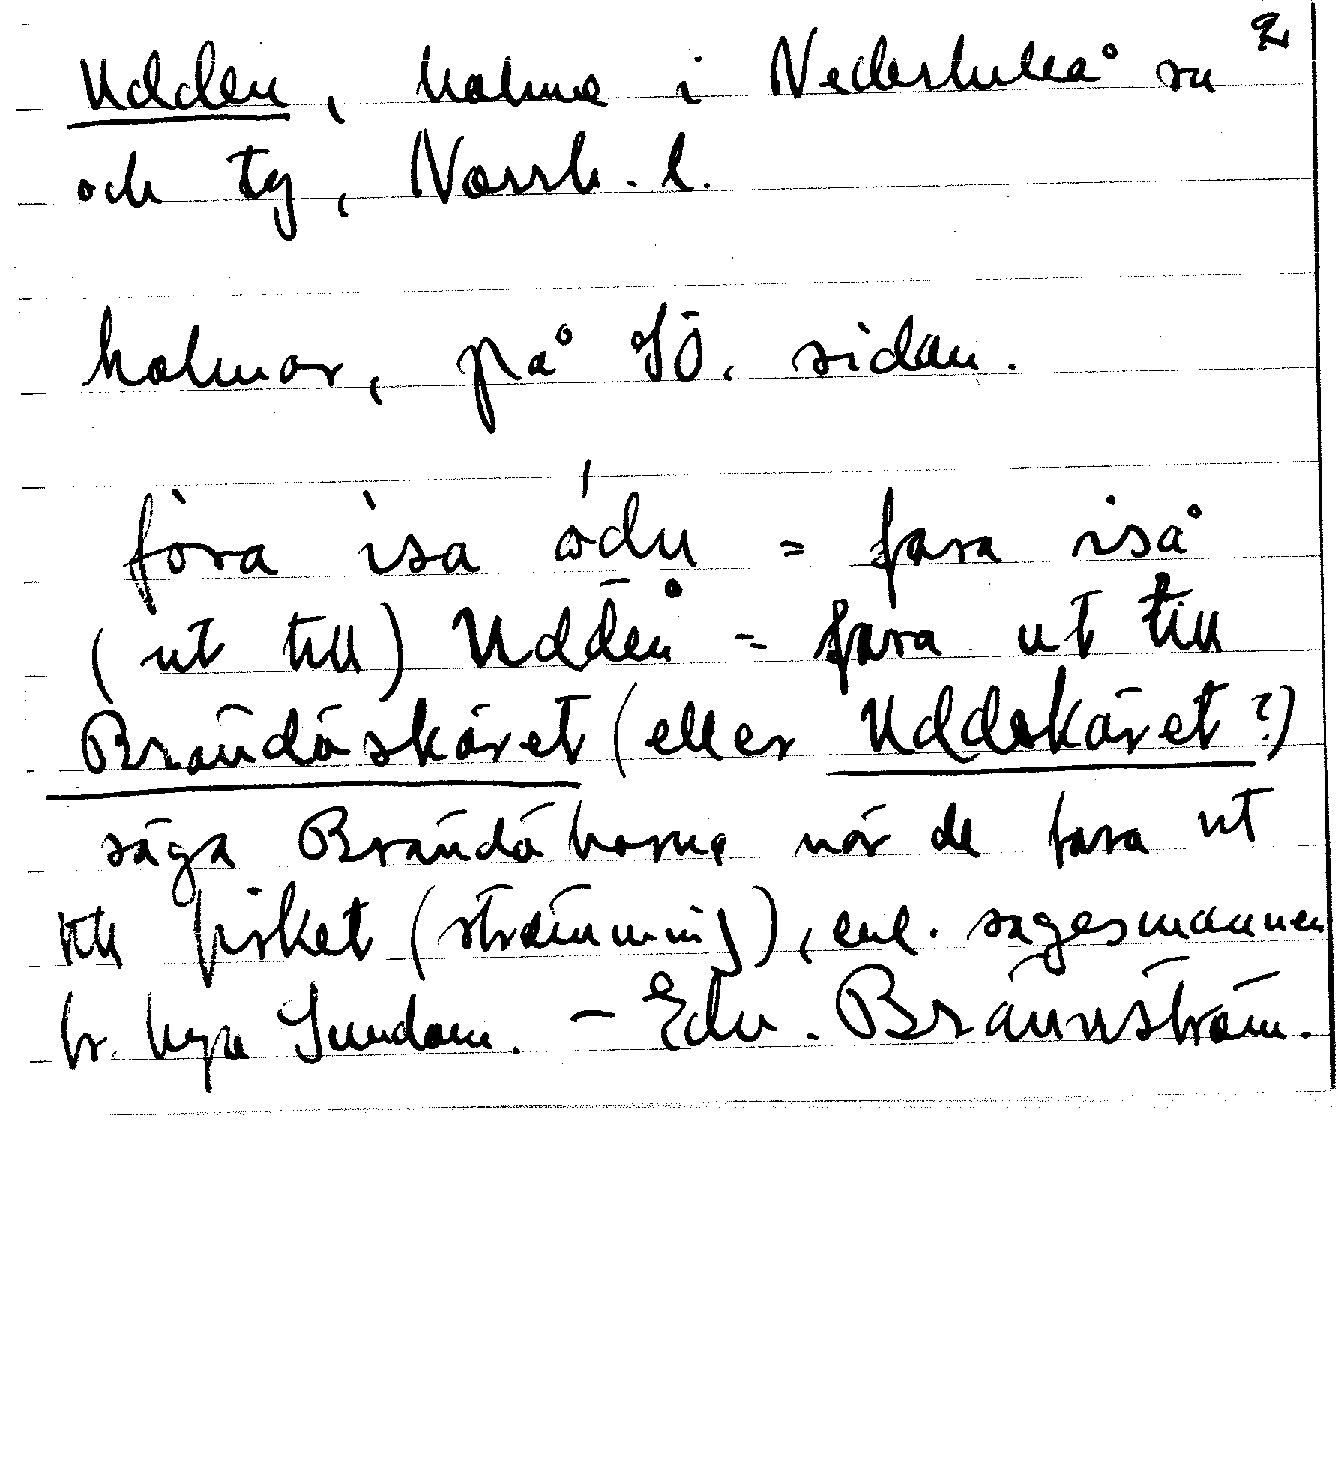 2
Udden, holme i Nederluleå sn
och tg, Norrb. l.
holmar, på sö. sidan.
fòra ìsa ódn = fara iså
(ut till) Udden = fara ut till
Brändöskäret (eller Uddskäret?)
säga Brändöborna när de fara ut
till fisket (strömming), enl. sagesmannen
br. Sundom. – Edv. Brännström.